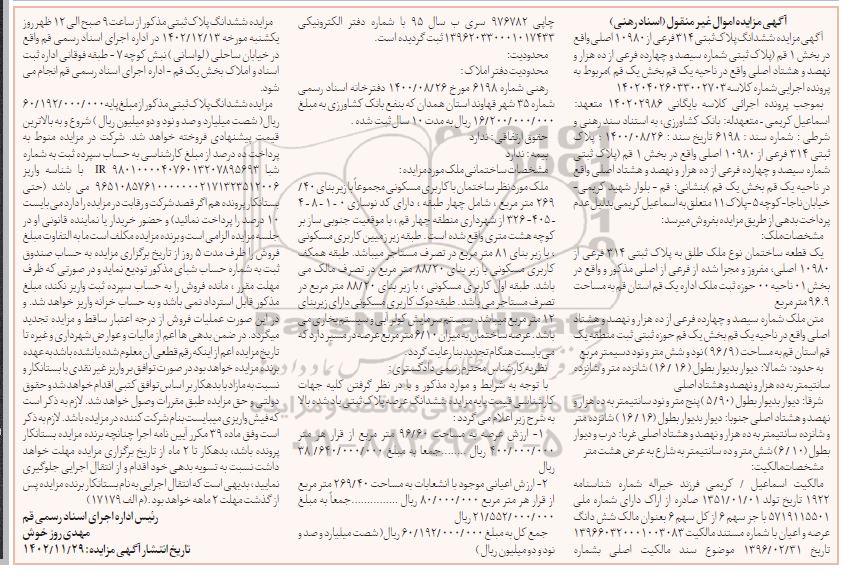 آگهی مزایده اموال غیر منقول (اسناد رهنی)
آگهی مزایده ششدانگ پلاک ثبتی ۳۱۴ فرعی از ۱۰۹۸۰ اصلی واقع
در بخش ۱ قم (پلاک ثبتی شماره سیصد و چهارده فرعی از ده هزار و
نهصد و هشتاد اصلی واقع در ناحیه یک قم بخش یک قم) مربوط به
پرونده اجرایی شماره کلاسه ۱۴۰۲۰۴۰۲۶۰۳۳۰۰۲۷۰۳
بموجب پرونده اجرائی کلاسه بایگانی ۱۴۰۲۰۲۹۸۶ متعهد:
اسماعیل کریمی -متعهدله: بانک کشاورزی، به استناد سند رهنی و
شرطی : شماره سند : ۶۱۹۸ تاریخ سند : ۱۴۰۰/۰۸/۲۶ : پلاک
ثبتی ۳۱۴ فرعی از ۱۰۹۸۰ اصلی واقع در بخش ۱ قم (پلاک ثبتی
شماره سیصد و چهارده فرعی از ده هزار و نهصد و هشتاد اصلی واقع
در ناحیه یک قم بخش یک قم )بنشانی: قم - بلوار شهید کریمی-
خیابان ناجا-کوچه۵-پلاک ۱۱ متعلق به اسماعیل کریمی بدلیل عدم
پرداخت بدهی از طریق مزایده بفروش میرسد:
مشخصات ملک:
یک قطعه ساختمان نوع ملک طلق به پلاک ثبتی ۳۱۴ فرعی از
۱۰۹۸۰ اصلی، مفروز و مجزا شده از فرعی از اصلی مذکور و واقع در
بخش ۰۱ ناحیه ۰۰ حوزه ثبت ملک اداره یک قم استان قم به مساحت
۹۶.۹ متر مربع
متن ملک شماره سیصد و چهارده فرعی از ده هزار و نهصد و هشتاد
اصلی واقع در ناحیه یک قم بخش یک قم حوزه ثبتی ثبت منطقه یک
قم استان قم به مساحت (۹۶/۹) نود و شش متر و نود دسیمتر مربع
به حدود: شمالا: دیوار بدیوار بطول (۱۶/۱۶) شانزده متر و شانزده
سانتیمتر به ده هزار و نهصد و هشتاد اصلی
شرقا: دیوار بدیوار بطول (۵/۹۰) پنج متر و نود سانتیمتر به ده هزار و
نهصد و هشتاد اصلی جنوبا: دیوار بدیوار بطول (۱۶/۱۶) شانزده متر
و شانزده سانتیمتر به ده هزار و نهصد و هشتاد اصلی غربا: درب و دیوار
بطول (۶/۱۰) شش متر و ده سانتیمتر به شارع به عرض هشت متر
مشخصات مالکیت:
مالکیت اسماعیل / کریمی فرزند خیراله شماره شناسنامه
۱۹۲۲ تاریخ تولد ۱۳۵۱/۰۱/۰۱ صادره از اراک دارای شماره ملی
۵۷۱۹۱۱۵۵۰۱ با جز سهم ۶ از کل سهم ۶ بعنوان مالک شش دانگ
عرصه و اعیان با شماره مستند مالکیت ۱۳۹۶۶۰۳۲۰۰۰۱۰۰۳۰۸۳
تاریخ ۱۳۹۶/۰۲/۳۱ موضوع سند مالکیت اصلی بشماره
چاپی ۹۷۶۷۸۲ سری ب سال ۹۵ با شماره دفتر الکترونیکی
۱۳۹۶۲۰۳۳۰۰۰۱۰۱۷۴۳۳ ثبت گردیده است.
محدودیت:
محدودیت دفتر املاک:
رهنی شماره ۶۱۹۸ مورخ ۱۴۰۰/۰۸/۲۶ دفترخانه اسناد رسمی
شماره ۳۵ شهر قهاوند استان همدان که بنفع بانک کشاورزی به مبلغ
۱۶/۲۰۰/۰۰۰/۰۰۰ ریال به مدت ۱۰ سال ثبت شده .
حقوق ارتفاقی: ندارد
بیمه: ندارد
مشخصات ساختمانی ملک مورد مزایده:
ملک مورد نظر ساختمان با کاربری مسکونی مجموعاً با زیر بنای ۴۰/
۲۶۹ متر مربع ، شامل چهار طبقه ، دارای کد نوسازی ۰-۱-۸-۴
-۴۰۵-۳۲۶ از شهرداری منطقه چهار قم ، با موقعیت جنوبی ساز بر
کوچه هشت متری واقع شده است . طبقه زیر زمیین کاربری مسکونی
، با زیر بنای ۸۱ متر مربع در تصرف مستاجر میباشد. طبقه همکف
کاربری مسکونی با زیر بنای ۸۸/۲۰ متر مربع در تصرف مالک می
باشد. طبقه اول کاربری مسکونی ، با زیر بنای ۸۸/۲۰ متر مربع در
تصرف مستاجر می باشد . طبقه دوک کاربری مسکونی دارای زیربنای
۱۲ متر مربع میباشد. سیستم سرمایش کولر آبی و سیستم بخاری می
باشد. عرصه ساختمان به میزان ۶/۱۰ متر مربع عرصه در مسیر دارد که
می بایست هنگام تجدید بنا رعایت گردد .
نظریه کارشناس محترم رسمی دادگستری:
با توجه به شرایط و موارد مذکور و با در نظر گرفتن کلیه جهات
کارشناسی قیمت پایه مزایده ششدانگ عرصه پلاک ثبتی یاد شده بالا
به شرح زیر اعلام می گردد:
۱- ارزش عرصه به مساحت ۹۶/۶۰ متر مربع از قرار هر متر
۴۰۰/۰۰۰/۰۰۰ ریال ........جمعا به مبلغ ۳۸/۶۴۰/۰۰۰/۰۰۰
ریال
۲- ارزش اعیانی موجود با انشعابات به مساحت ۲۶۹/۴۰ متر مربع
از قرار هر متر مربع ۸۰/۰۰۰/۰۰۰ ریال ............... جمعاً به مبلغ
۲۱/۵۵۲/۰۰۰/۰۰۰ ریال
جمع کل به مبلغ ۶۰/۱۹۲/۰۰۰/۰۰۰ ریال( شصت میلیارد و صد و
نود و دو میلیون ریال)
مزایده ششدانگ پلاک ثبتی مذکور از ساعت ۹ صبح الی ۱۲ ظهر روز
یکشنبه مورخه ۱۴۰۲/۱۲/۱۳ در اداره اجرای اسناد رسمی قم واقع
در خیابان ساحلی (لواسانی) نبش کوچه ۷ - طبقه فوقانی اداره ثبت
اسناد و املاک بخش یک قم - اداره اجرای اسناد رسمی قم انجام می
شود.
مزایده ششدانگ پلاک ثبتی مذکور از مبلغ پایه ۶۰/۱۹۲/۰۰۰/۰۰۰
ریال( شصت میلیارد و صد و نود و دو میلیون ریال ) شروع و به بالاترین
قیمت پیشنهادی فروخته خواهد شد. شرکت در مزایده منوط به
پرداخت ده درصد از مبلغ کارشناسی به حساب سپرده ثبت به شماره
شبا IR ۹۸۰۱۰۰۰۰۴۰۷۶۰۱۳۲۰۷۸۹۵۶۹۳ با شناسه واریز
۹۶۵۱۰۸۵۷۶۱۰۰۰۰۰۰۰۲۱۷۱۳۲۳۵۱۲۰۰۶ می باشد (حتی
بستانکار پرونده هم اگر قصد شرکت و رقابت در مزایده را دارد می بایست
۱۰ درصد را پرداخت نمائید) و حضور خریدار یا نماینده قانونی او در
جلسه مزایده الزامی است و برنده مزایده مکلف است ما به التفاوت مبلغ
فروش را ظرف مدت ۵ روز از تاریخ برگزاری مزایده به حساب صندوق
ثبت به شماره حساب شبای مذکور تودیع نماید و در صورتی که ظرف
مهلت مقرر ، مانده فروش را به حساب سپرده ثبت واریز نکند، مبلغ
مذکور قابل استرداد نمی باشد و به حساب خزانه واریز خواهد شد. و
در این صورت عملیات فروش از درجه اعتبار ساقط و مزایده تجدید
میگردد. در ضمن بدهی ها اعم از مالیات و عوارض شهرداری و غیره تا
تاریخ مزایده اعم از اینکه رقم قطعی آن معلوم شده یا نشده باشد به عهده
برنده مزایده خواهد بود در صورت توافق بر واریز غیر نقدی با بستانکار و
نسبت به مازاد با بدهکار بر اساس توافق کتبی اقدام خواهد شد و حقوق
دولتی و حق مزایده طبق مقررات وصول خواهد شد. لازم به ذکر است
که فیش واریزی میبایست بنام شرکت کننده در مزایده باشد. لازم به ذکر
است وفق ماده ۳۹ مکرر آیین نامه اجرا چنانچه برنده مزایده بستانکار
پرونده باشد، بدهکار تا ۲ ماه از تاریخ برگزاری مزایده مهلت خواهد
داشت نسبت به تسویه بدهی خود اقدام و از انتقال اجرایی جلوگیری
نمایید ، بدیهی است که انتقال اجرایی به نام بستانکار برنده مزایده پس
از گذشت مهلت ۲ ماهه خواهد بود. (م الف ۱۷۱۷۹)
رئیس اداره اجرای اسناد رسمی قم
مهدی روز خوش
تاریخ انتشار آگهی مزایده: ۱۴۰۲/۱۱/۲۹